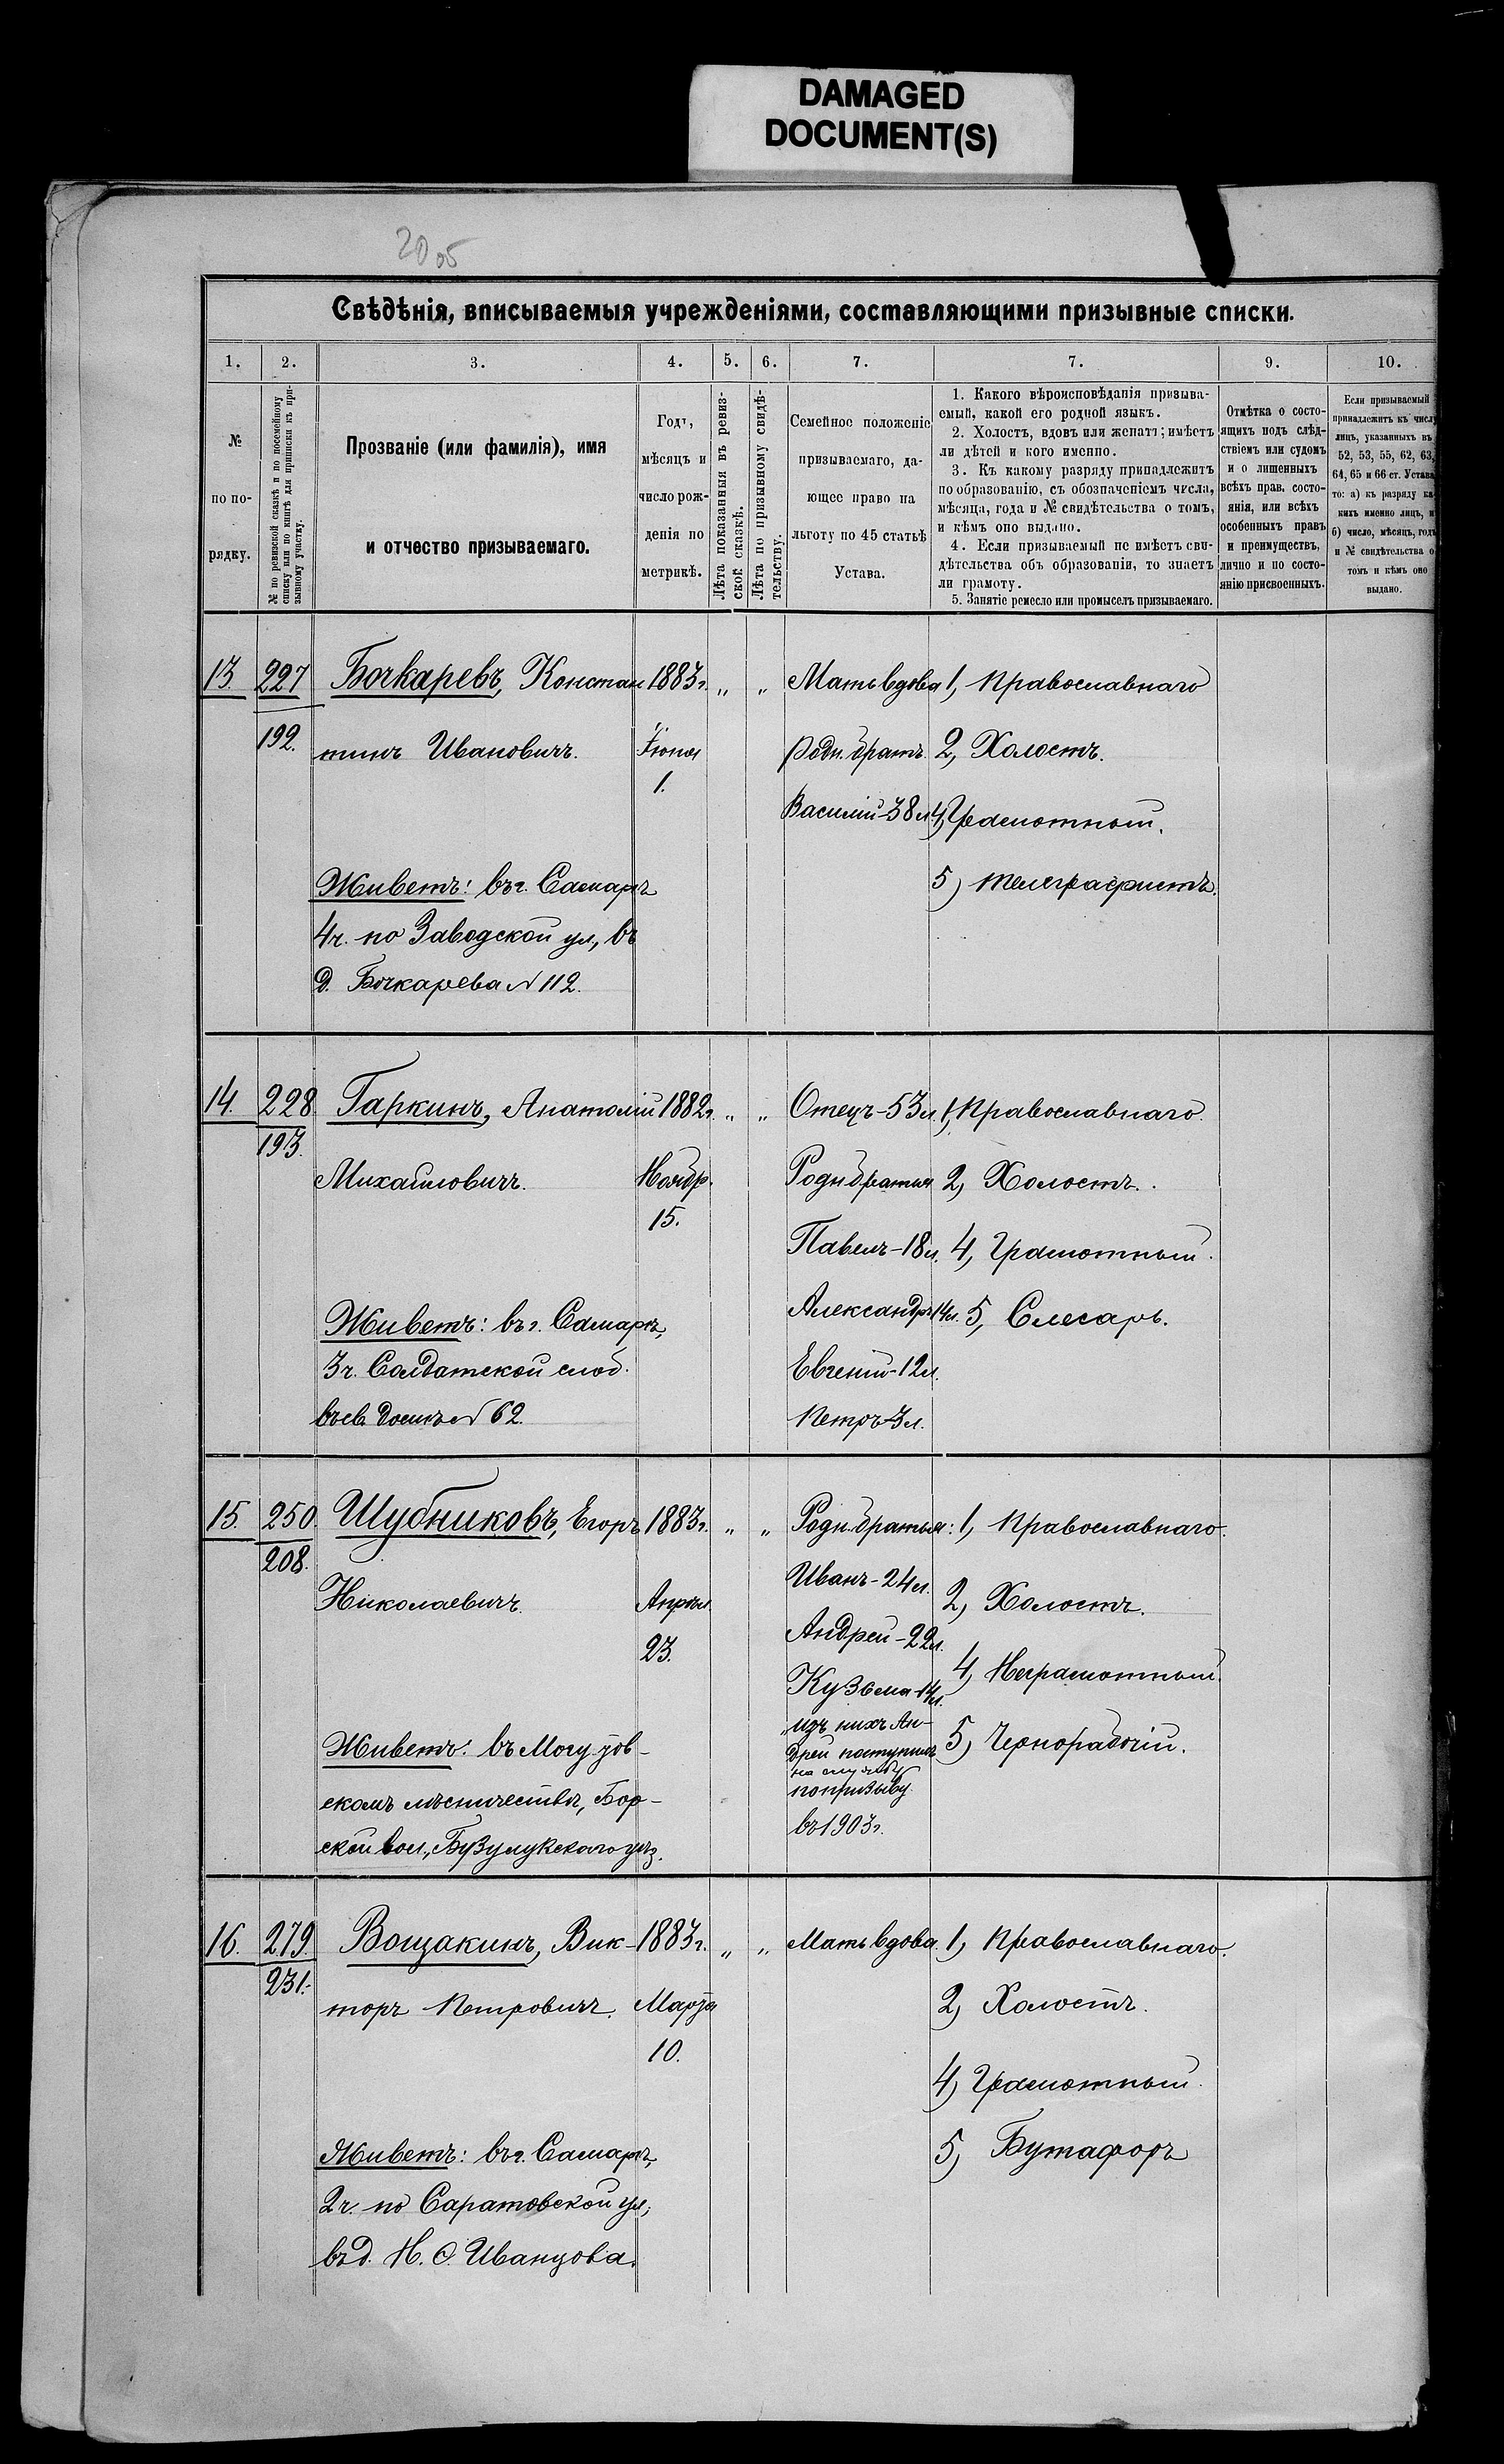 DAMAGED
DOCUMENT(S)
20 05
Свѣдѣнія, вписываемыя учрежденіями, составляющими призывные списки.
1. 2. 3. 4. 5. 6. 7. 7. 9. 10.
№
по по-
рядку.
№ по ревизской сказкѣ и по посемейному
списку или по книгѣ для приписки къ при-
зывному участку.
Прозваніе (или фамилія), имя
и отчество призываемаго.
Годъ,
мѣсяцъ и
число рож-
денія по
метрикѣ.
Лѣта показанныя въ ревиз-
ской сказкѣ.
Лѣта по призывному свидѣ-
тельству.
Семейное положеніе
призываемаго, да-
ющее право на
льготу по 45 статьѣ
Устава.
1. Какого вѣроисповѣданія призыва-
емый, какой его родной языкъ.
2. Холостъ, вдовъ или женатъ; имѣетъ
ли дѣтей и кого именно.
3. Къ какому разряду принадлежитъ
по образованію, съ обозначеніемъ числа,
мѣсяца, года и № свидѣтельства о томъ,
и кѣмъ оно выдано.
4. Если призываемый не имѣетъ сви-
дѣтельства объ образованіи, то знаетъ
ли грамоту.
5. Занятіе ремесло или промыселъ призываемаго.
Отмѣтка о состо-
ящихъ подъ слѣд-
ствіемъ или судомъ
и о лишенныхъ
всѣхъ прав. состо-
янія, или всѣхъ
особенныхъ правъ
и преимуществъ,
лично и по состо-
янію присвоенныхъ.
Если призываемый
принадлежитъ къ числу
лицъ, указанныхъ въ
52, 53, 55, 62, 63,
64, 65 и 66 ст. Устава
то: а) къ разряду ка-
кихъ именно лицъ, и
б) число, мѣсяцъ, годъ
и № свидѣтельства о
томъ и кѣмъ оно
выдано.
13. 227 Бочкаревъ, Констан 1883г. „ „ Мать вдова 1, Православнаго
192. тинъ Ивановичъ. Іюня Родн. братъ. 2, Холостъ.
1.
Василій-38л. 4, Грамотный.
Живетъ: въ г. Самарѣ 5) Телеграфистъ.
4ч. по Заводской ул., въ
д. Бочкарева № 112.
14. 228. Гаркинъ, Анатолій 1882г. „ „ Отецъ-53л. 1, Православнаго.
193.
Михаиловичъ. Ноябр. Родн братья 2, Холостъ.
15.
Павелъ-18л. 4, Грамотный.
Живетъ: въ г. Самарѣ, Александръ 14л. 5, Слесарь.
3ч. Солдатской слоб. Евгеній-12л.
въ св. домѣ № 62. Петръ-3л.
15. 250. Шубниковъ, Егоръ 1883г. „ „ Родн. братья: 1, Православнаго.
208.
Николаевичъ. Апрѣл. Иванъ-24л. 2, Холостъ.
23. Андрей-22л.
Кузьма-14л. 4, Неграмотный.
Живетъ: въ Могу тов- изъ нихъ Ан- 5) Чернорабочій.
дрей поступилъ
на службу
скомъ лѣсничествѣ, Бор- по призыву
ской вол., Бузулукскаго уѣз. въ 1903г.
16. 279. Вощакинъ, Вик- 1883г. „ „ Мать вдова. 1, Православнаго.
231.
торъ Петровичъ. Марта 2, Холостъ.
10.
4) Грамотный.
Живетъ: въ г. Самарѣ, 5) Бутафоръ
2ч. по Саратовской ул;
въ д. Н. О. Иванцова.